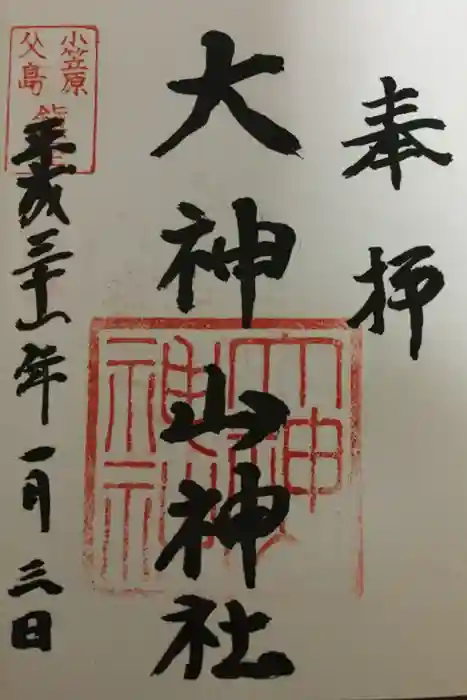 奉拝
大神山神社
小笠原
父島
平成三十一年一月三日